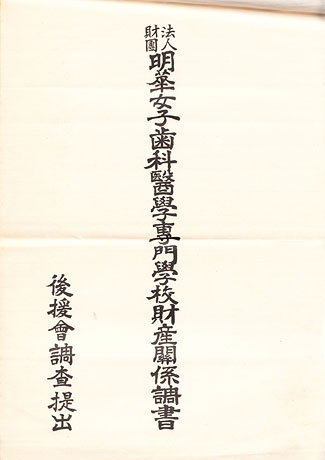 財團法人
明華女子歯科醫學專門學校財産關係調書
後援會調査提出